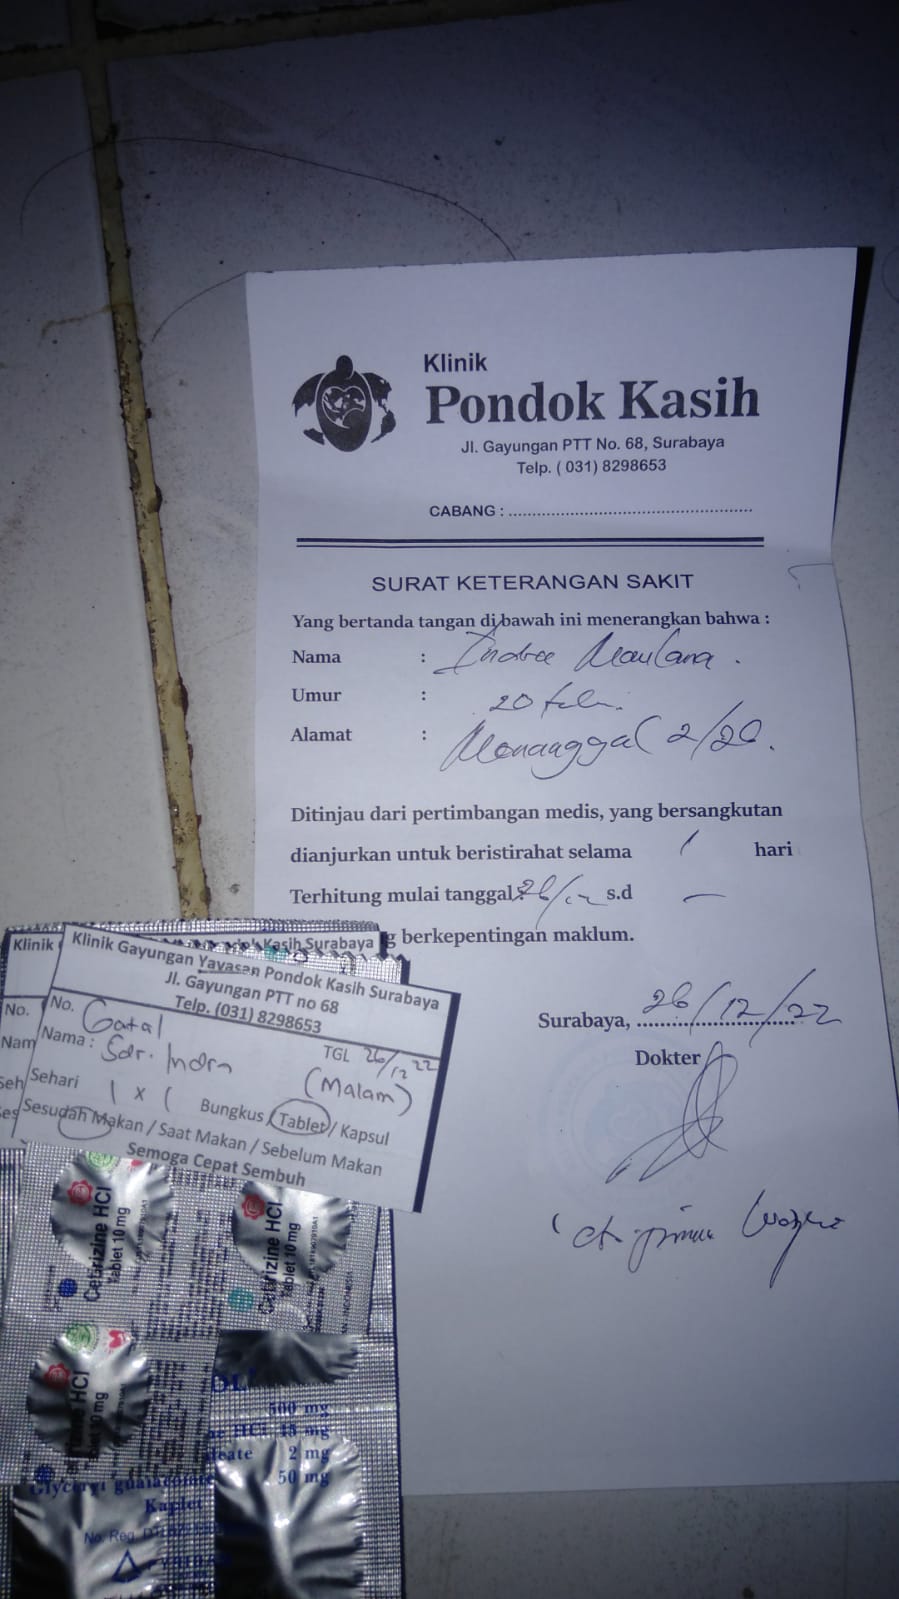 Klinik
Pondok Kasih
Jl. Gayungan PTT No. 68, Surabaya
Telp. ( 031) 8298653
CABANG : ....................................................
SURAT KETERANGAN SAKIT
Yang bertanda tangan di bawah ini menerangkan bahwa :
Nama : Indra Maulana.
Umur : 20
Alamat : Menanggal 2/20.
Ditinjau dari pertimbangan medis, yang bersangkutan
dianjurkan untuk beristirahat selama 1 hari
Terhitung mulai tanggal 26/12 s.d —
g berkepentingan maklum.
Surabaya, 26/12/22
Dokter
Klinik
Kasih Surabaya
No.
Nam
Seh
Ses
Klinik Gayungan Yayasan Pondok Kasih Surabaya
Jl. Gayungan PTT no 68
Telp. (031) 8298653
No. Gatal
Nama : Sdr. Indra TGL 26/12 22
Sehari 1 x 1 (Malam)
Bungkus / Tablet / Kapsul
Sesudah Makan / Saat Makan / Sebelum Makan
Semoga Cepat Sembuh
Cetirizine HCl
Tablet 10 mg
Cetirizine HCl
Tablet 10 mg
HCl
10 mg
500 mg
HCl 15 mg
leate 2 mg
Glyceryl guaiacolate 50 mg
Kaplet
No. Reg.